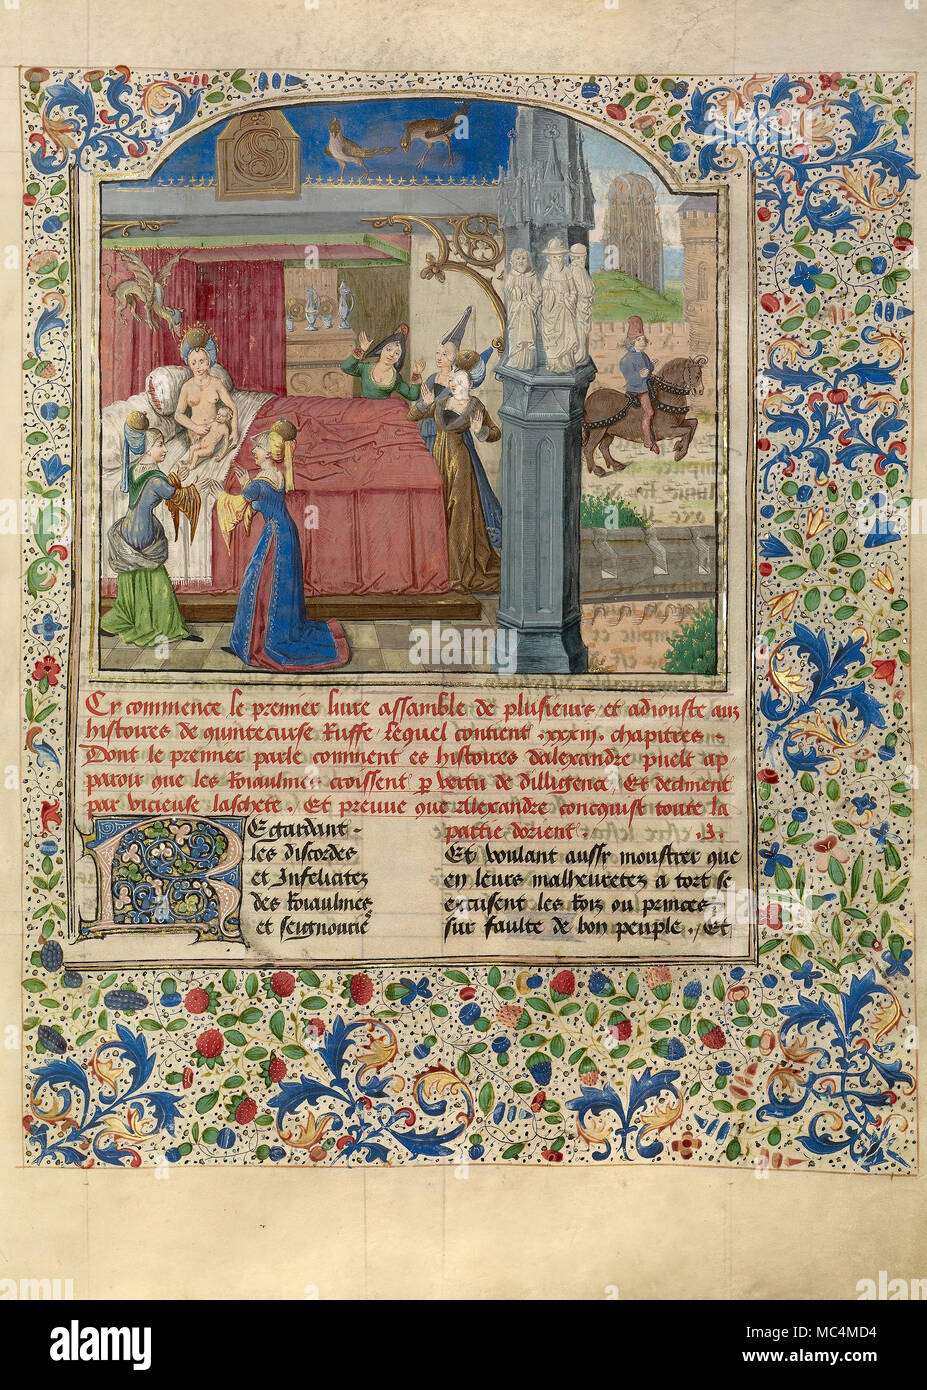 Cy commence le premier liure assamble de plusieurs et adiouste aux
histoires de quinte curse Ruffe. lequel contient .xxxiij. chapitres.
Dont le premier parle comment es histoires dalexandre puelt ap
paroir que les Roiaulmes croissent p vertu de dilligence. Et declinent
par vicieuse laschete. Et preuue que Alexandre concquist toute la
partie dorient. .I.
REgardant
les discordes
et Infelicitez
des Roiaulmes
et seignourie
Et voulant aussy monstrer que
en leurs malheuretez a tort se
excusent les Roix ou princes
sur faulte de bon peuple. Et
S
alamy
Image ID: MC4MD4
www.alamy.com